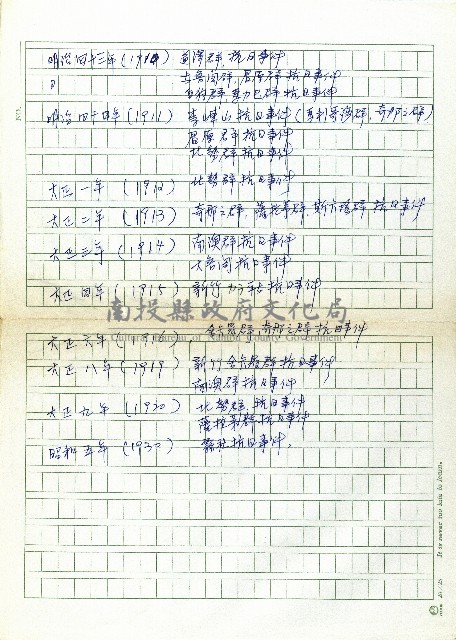 明治四十三年 (1910) 南澳群抗日事件
大嵙崁群 抗日事件
抗日事件
明治四十四年 (1911) 李崠山抗日事件
眉原群抗日事件
北勢群抗日事件
大正一年 (1912) 北勢群抗日事件
大正二年 (1913) 奇那之群, 薩拉茅群, 斯卡瑤群, 抗日事件
大正三年 (1914) 南澳群抗日事件
抗日事件
大正四年 (1915) 新竹 抗日事件
南投縣政府文化局
Cultural Bureau of Nantou County Government
奇那之群抗日事件
大正六年 (191
大正八年 (1919) 新竹合卡羅群抗日事件
南澳群抗日事件
大正九年 (1920) 北勢群, 抗日事件
薩拉茅群抗日事件
昭和五年 (1930) 霧社抗日事件,
It is never too late to learn.